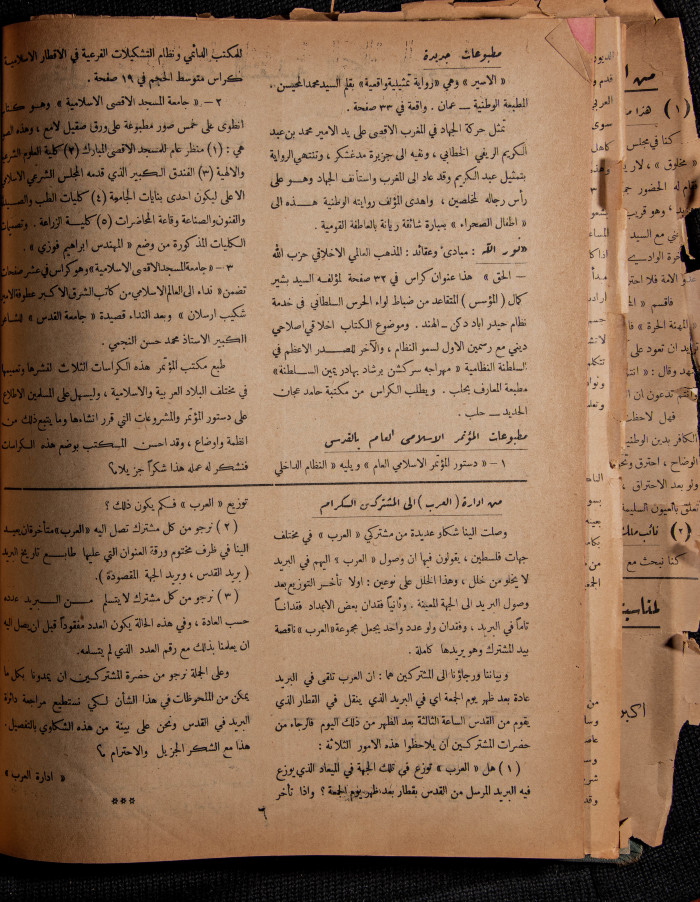 مطبوعات جديدة
« الاسير » وهي «رواية تمثيلية واقعية» بقلم السيد محمد المحيسن .
المطبعة الوطنية — عمان . واقعة في ٣٣ صفحة .
تمثل حركة الجهاد في المغرب الاقصى على يد الامير محمد بن عبد
الكريم الريفي الخطابي ، ونفيه الى جزيرة مدغشكر ، وتنتهي الرواية
بتمثيل عبد الكريم وقد عاد الى المغرب واستأنف الجهاد وهو على
رأس رجاله المخلصين ، واهدى المؤلف روايته الوطنية هذه الى
« اطفال الصحراء » بعبارة شائقة ريانة بالعاطفة القومية .
«نور الله : مبادئ وعقائد : المذهب العالمي الاخلاقي حزب الله
— الحق » هذا عنوان كراس في ٣٢ صفحة لمؤلفه السيد بشير
كمال ( المؤسس ) المتقاعد من ضباط لواء الحرس السلطاني في خدمة
نظام حيدر اباد دكن — الهند . وموضوع الكتاب اخلاقي اصلاحي
ديني مع رسمين الاول لسمو النظام ، والآخر للصدر الاعظم في
السلطنة النظامية « مهراجه سركشن برشاد بهادر يمين السلطنة»
مطبعة المعارف بحلب . ويطلب الكراس من مكتبية حامد عجان
الحديد — حلب .
مطبوعات المؤتمر الاسلامي العام بالقدس
١ — « دستور المؤتمر الاسلامي العام » ويليه « النظام الداخلي
للمكتب الدائمي ونظام التشكيلات الفرعية في الاقطار الاسلامية
كراس متوسط الحجم في ١٩ صفحة .
٢ — « جامعة المسجد الاقصى الاسلامية » وهو كتاب
انطوى على خمس صور مطبوعة على ورق صقيل لامع ، وهذه
هي : (١) منظر عام للمسجد الاقصى المبارك (٢) كلية العلوم الشرعية
والالهية (٣) الفندق الكبير الذي قدمه المجلس الشرعي الاسلامي
الاعلى ليكون احدى بنايات الجامعة (٤) كليات الطب والصيدلة
والفنون والصناعة وقاعة المحاضرات (٥) كلية الزراعة . وتصميمات
الكليات المذكورة من وضع « المهندس ابراهيم فوزي » .
٣ — «جامعة المسجد الاقصى الاسلامية» وهو كراس في عشر صفحات
تضمن « نداء الى العالم الاسلامي من كاتب الشرق الاكبر عطوفة الامير
شكيب ارسلان » وبعد النداء قصيدة « جامعة القدس » للشاعر
الكبير الاستاذ محمد حسن النجمي .
طبع مكتب المؤتمر هذه الكراسات الثلاث لنشرها وتعميمها
في مختلف البلاد العربية والاسلامية ، وليسهل على المسلمين الاطلاع
على دستور المؤتمر والمشروعات التي قرر انشاءها وما يتبع ذلك من
انظمة واوضاع ، وقد احسن المكتب بوضع هذه الكراسات
فنشكر له عمله هذا شكراً جزيلا ؟
من ادارة ( العرب ) الى المشتركين الكرام
وصلت الينا شكاو عديدة من مشتركي « العرب » في مختلف
جهات فلسطين ، يقولون فيها ان وصول « العرب » اليهم في البريد
لا يخلو من خلل ، وهذا الخلل على نوعين : اولا تأخر التوزيع بعد
وصول البريد الى الجهة المعينة . وثانياً فقدان بعض الاعداد فقداناً
تاماً في البريد ، وفقدان ولو عدد واحد يجعل مجموعة «العرب» ناقصة
بيد المشترك وهو يريدها كاملة .
وبياننا ورجاؤنا الى المشتركين هما : ان العرب تلقى في البريد
عادة بعد ظهر يوم الجمعة اي في البريد الذي ينقل في القطار الذي
يقوم من القدس الساعة الثالثة بعد الظهر من ذلك اليوم فالرجاء من
حضرات المشتركين ان يلاحظوا هذه الامور الثلاثة :
(١) هل « العرب » توزع في تلك الجهة في الميعاد الذي يوزع
فيه البريد المرسل من القدس بقطار بعد ظهر يوم الجمعة ؟ واذا تأخر
توزيع « العرب » فكم يكون ذلك ؟
(٢) نرجو من كل مشترك تصل اليه «العرب» متأخرة ان يعيد
الينا في ظرف مختوم ورقة العنوان التي عليها طابع تاريخ البريد
( بريد القدس ، وبريد الجهة المقصودة ) .
(٣) نرجو من كل مشترك لا يتسلم من البريد عدده
حسب العادة ، وفي هذه الحالة يكون العدد مفقوداً قبل ان يصل اليه
ان يعلمنا بذلك مع رقم العدد الذي لم يتسلمه .
وعلى الجملة نرجو من حضرة المشتركين ان يمدونا بكل ما
يمكن من الملحوظات في هذا الشأن لكي نستطيع مراجعة دائرة
البريد في القدس ونحن على بينة من هذه الشكاوي بالتفصيل .
هذا مع الشكر الجزيل والاحترام ؟
« ادارة العرب »
***
٦